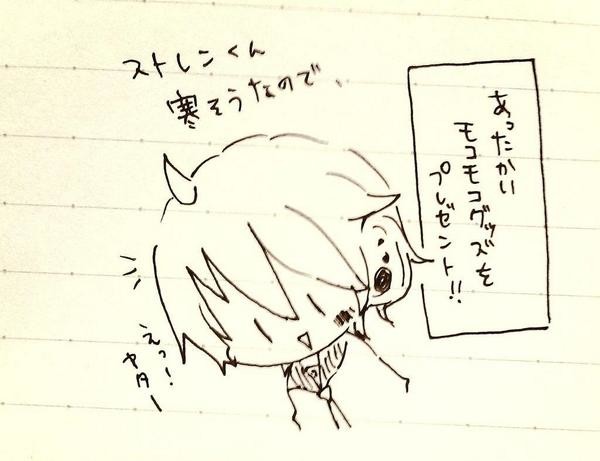 ストレンくん
寒そうなので、
あったかい
モコモコグッズを
プレゼント!!
えっ!
ヤター